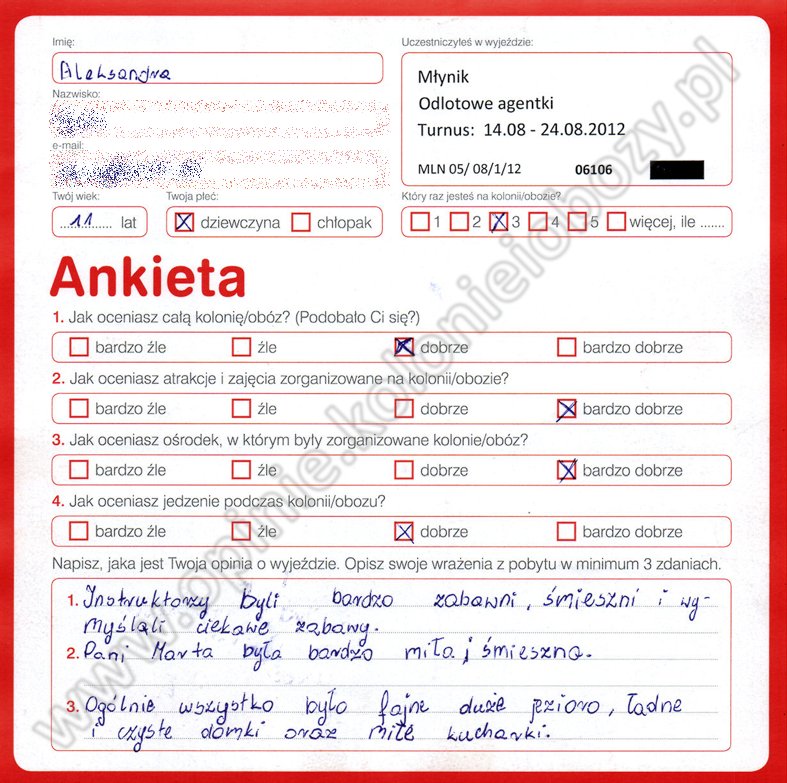 Imię:
Aleksandra
Nazwisko:
e-mail:
Twój wiek:
11 lat
Twoja płeć:
dziewczyna chłopak
Uczestniczyłeś w wyjeździe:
Młynik
Odlotowe agentki
Turnus: 14.08 - 24.08.2012
MLN 05/ 08/1/12 06106
Który raz jesteś na kolonii/obozie?
1 2 3 4 5 więcej, ile .......
Ankieta
1. Jak oceniasz całą kolonię/obóz? (Podobało Ci się?)
bardzo źle źle dobrze bardzo dobrze
2. Jak oceniasz atrakcje i zajęcia zorganizowane na kolonii/obozie?
bardzo źle źle dobrze bardzo dobrze
3. Jak oceniasz ośrodek, w którym były zorganizowane kolonie/obóz?
bardzo źle źle dobrze bardzo dobrze
4. Jak oceniasz jedzenie podczas kolonii/obozu?
bardzo źle źle dobrze bardzo dobrze
Napisz, jaka jest Twoja opinia o wyjeździe. Opisz swoje wrażenia z pobytu w minimum 3 zdaniach.
1. Instruktorzy byli bardzo zabawni, śmieszni i wy-
myślali ciekawe zabawy.
2. Pani Marta była bardzo miła i śmieszna.
3. Ogólnie wszystko było fajne duże jezioro, ładne
i czyste domki oraz miłe kucharki.
www.opinie.kolonieiobozy.pl